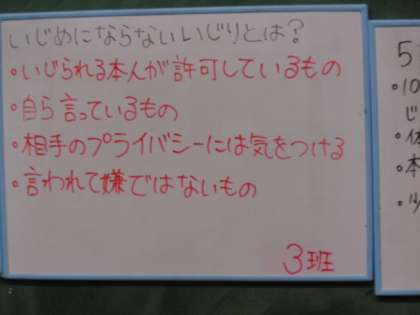 いじめにならないいじりとは?
・いじられる本人が許可しているもの
・自ら言っているもの
・相手のプライバシーには気をつける
・言われて嫌ではないもの
3班
5
・10
じ
・体
・本
・少